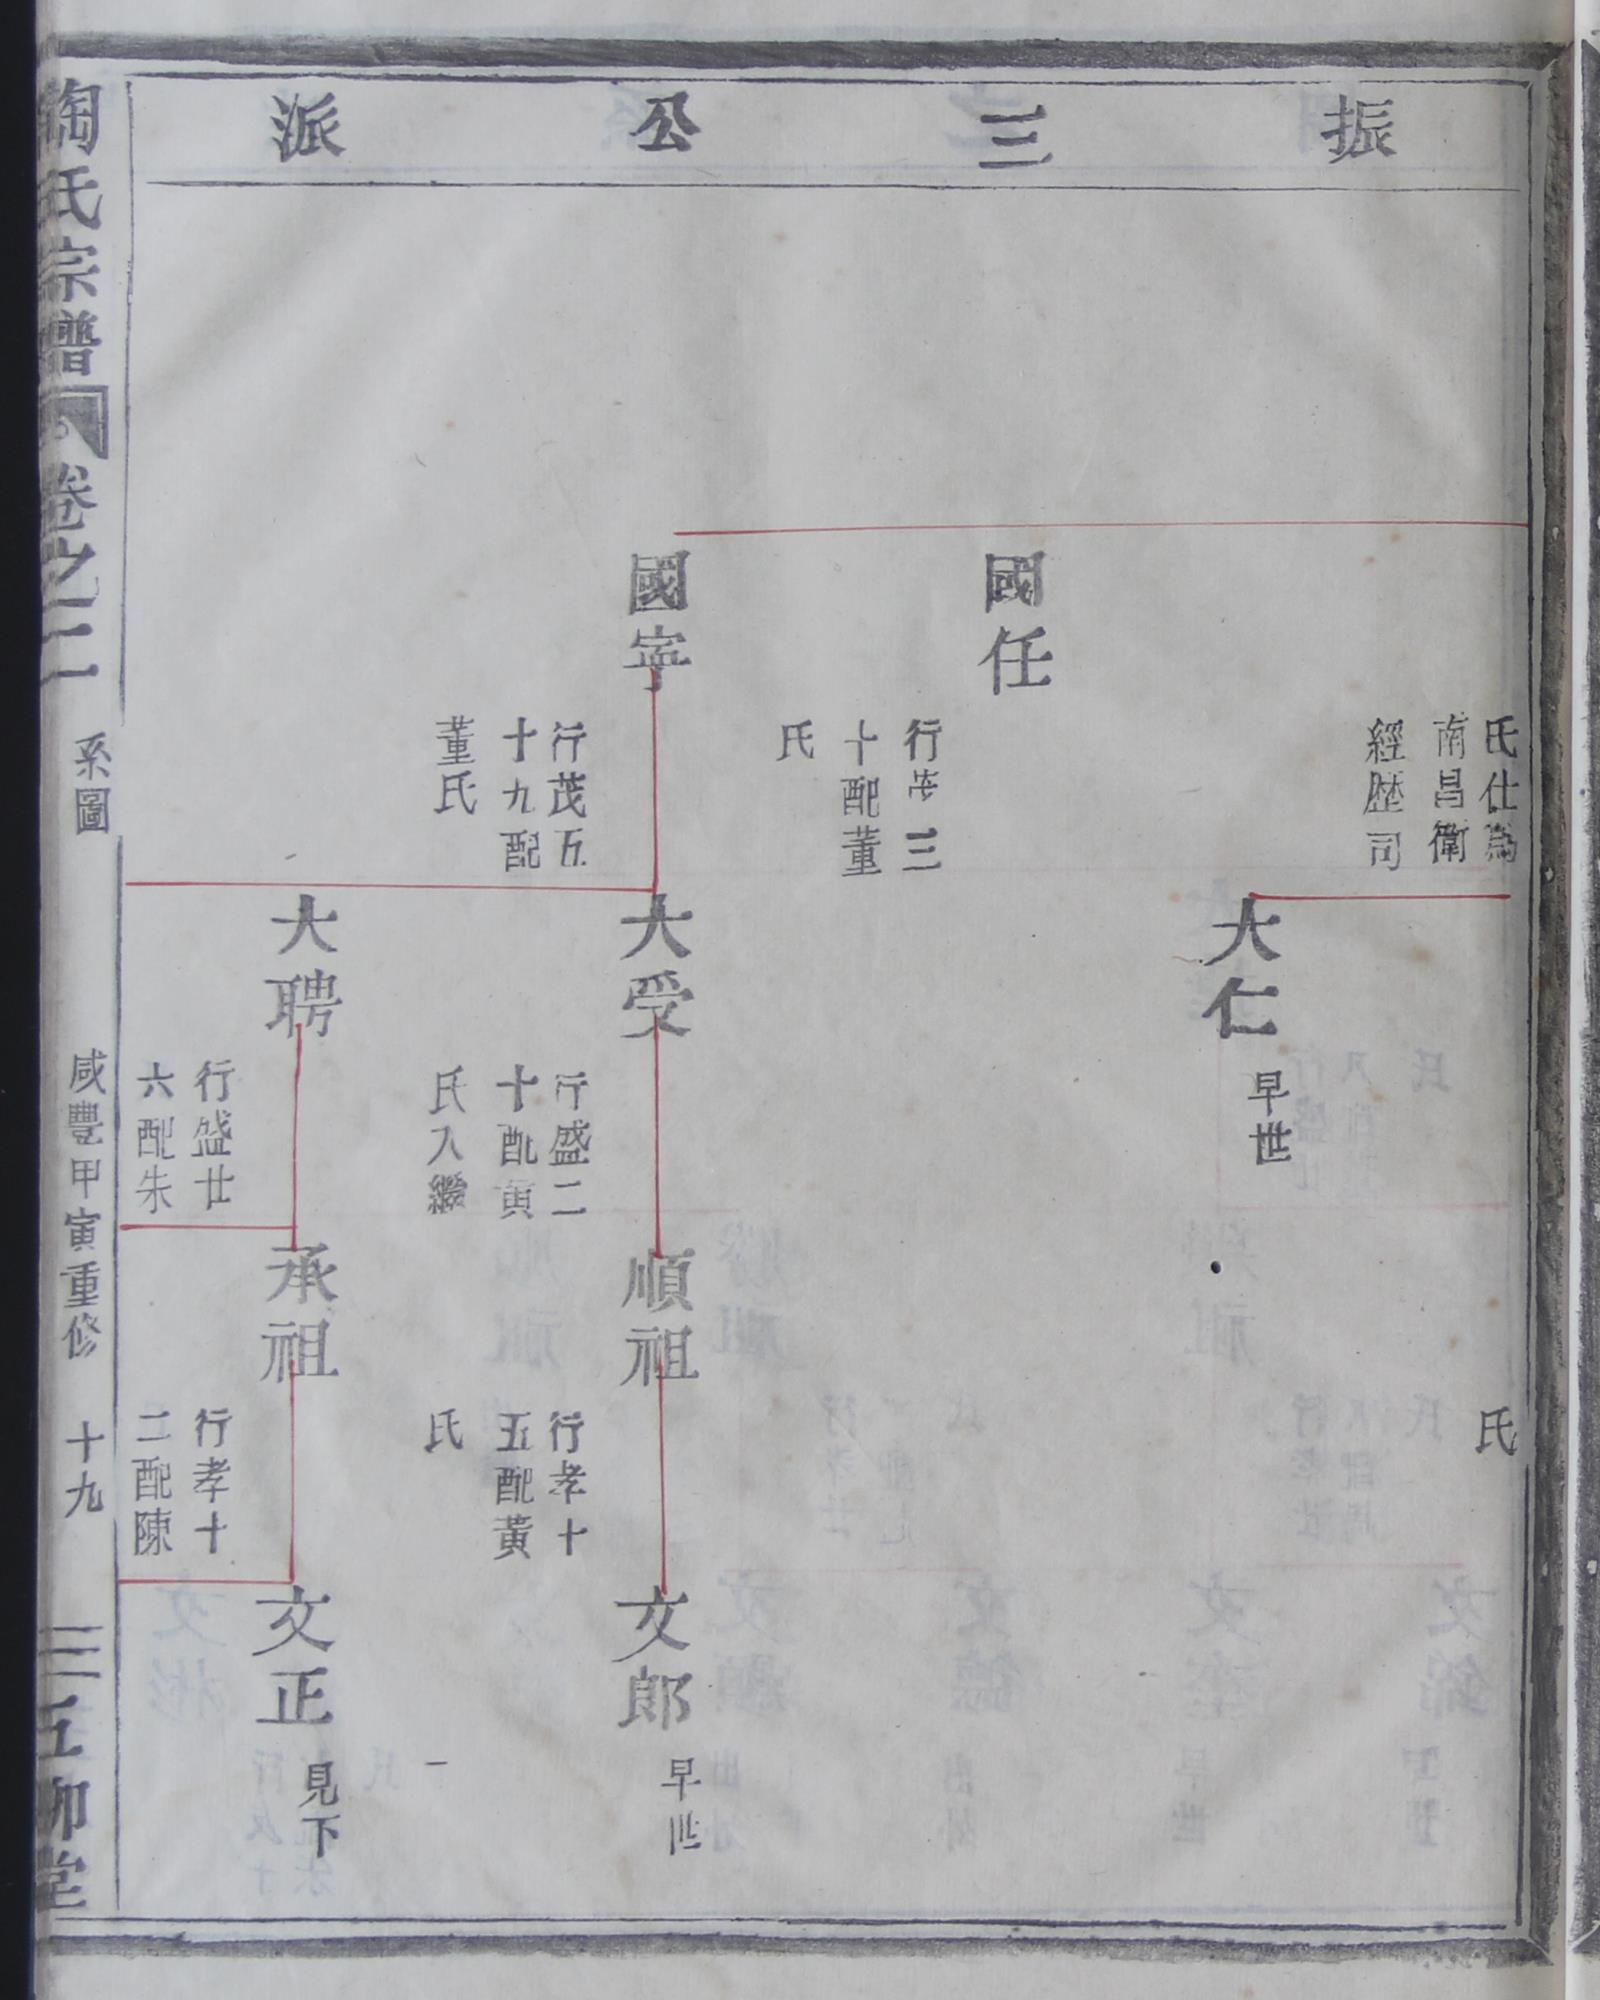 振三公派
氏仕為
南昌衛
經歷司
國任
行茂三
十配董
氏
國寧
行茂五
十九配
董氏
大仁
早世
大受
行盛二
十配黃
氏入繼
大聘
行盛廿
六配朱
氏
順祖
行孝十
五配黃
氏
承祖
行孝十
二配陳
文郎
早世
文正
見下
陶氏宗譜
卷之二
系圖
咸豐甲寅重修
十九
五柳堂